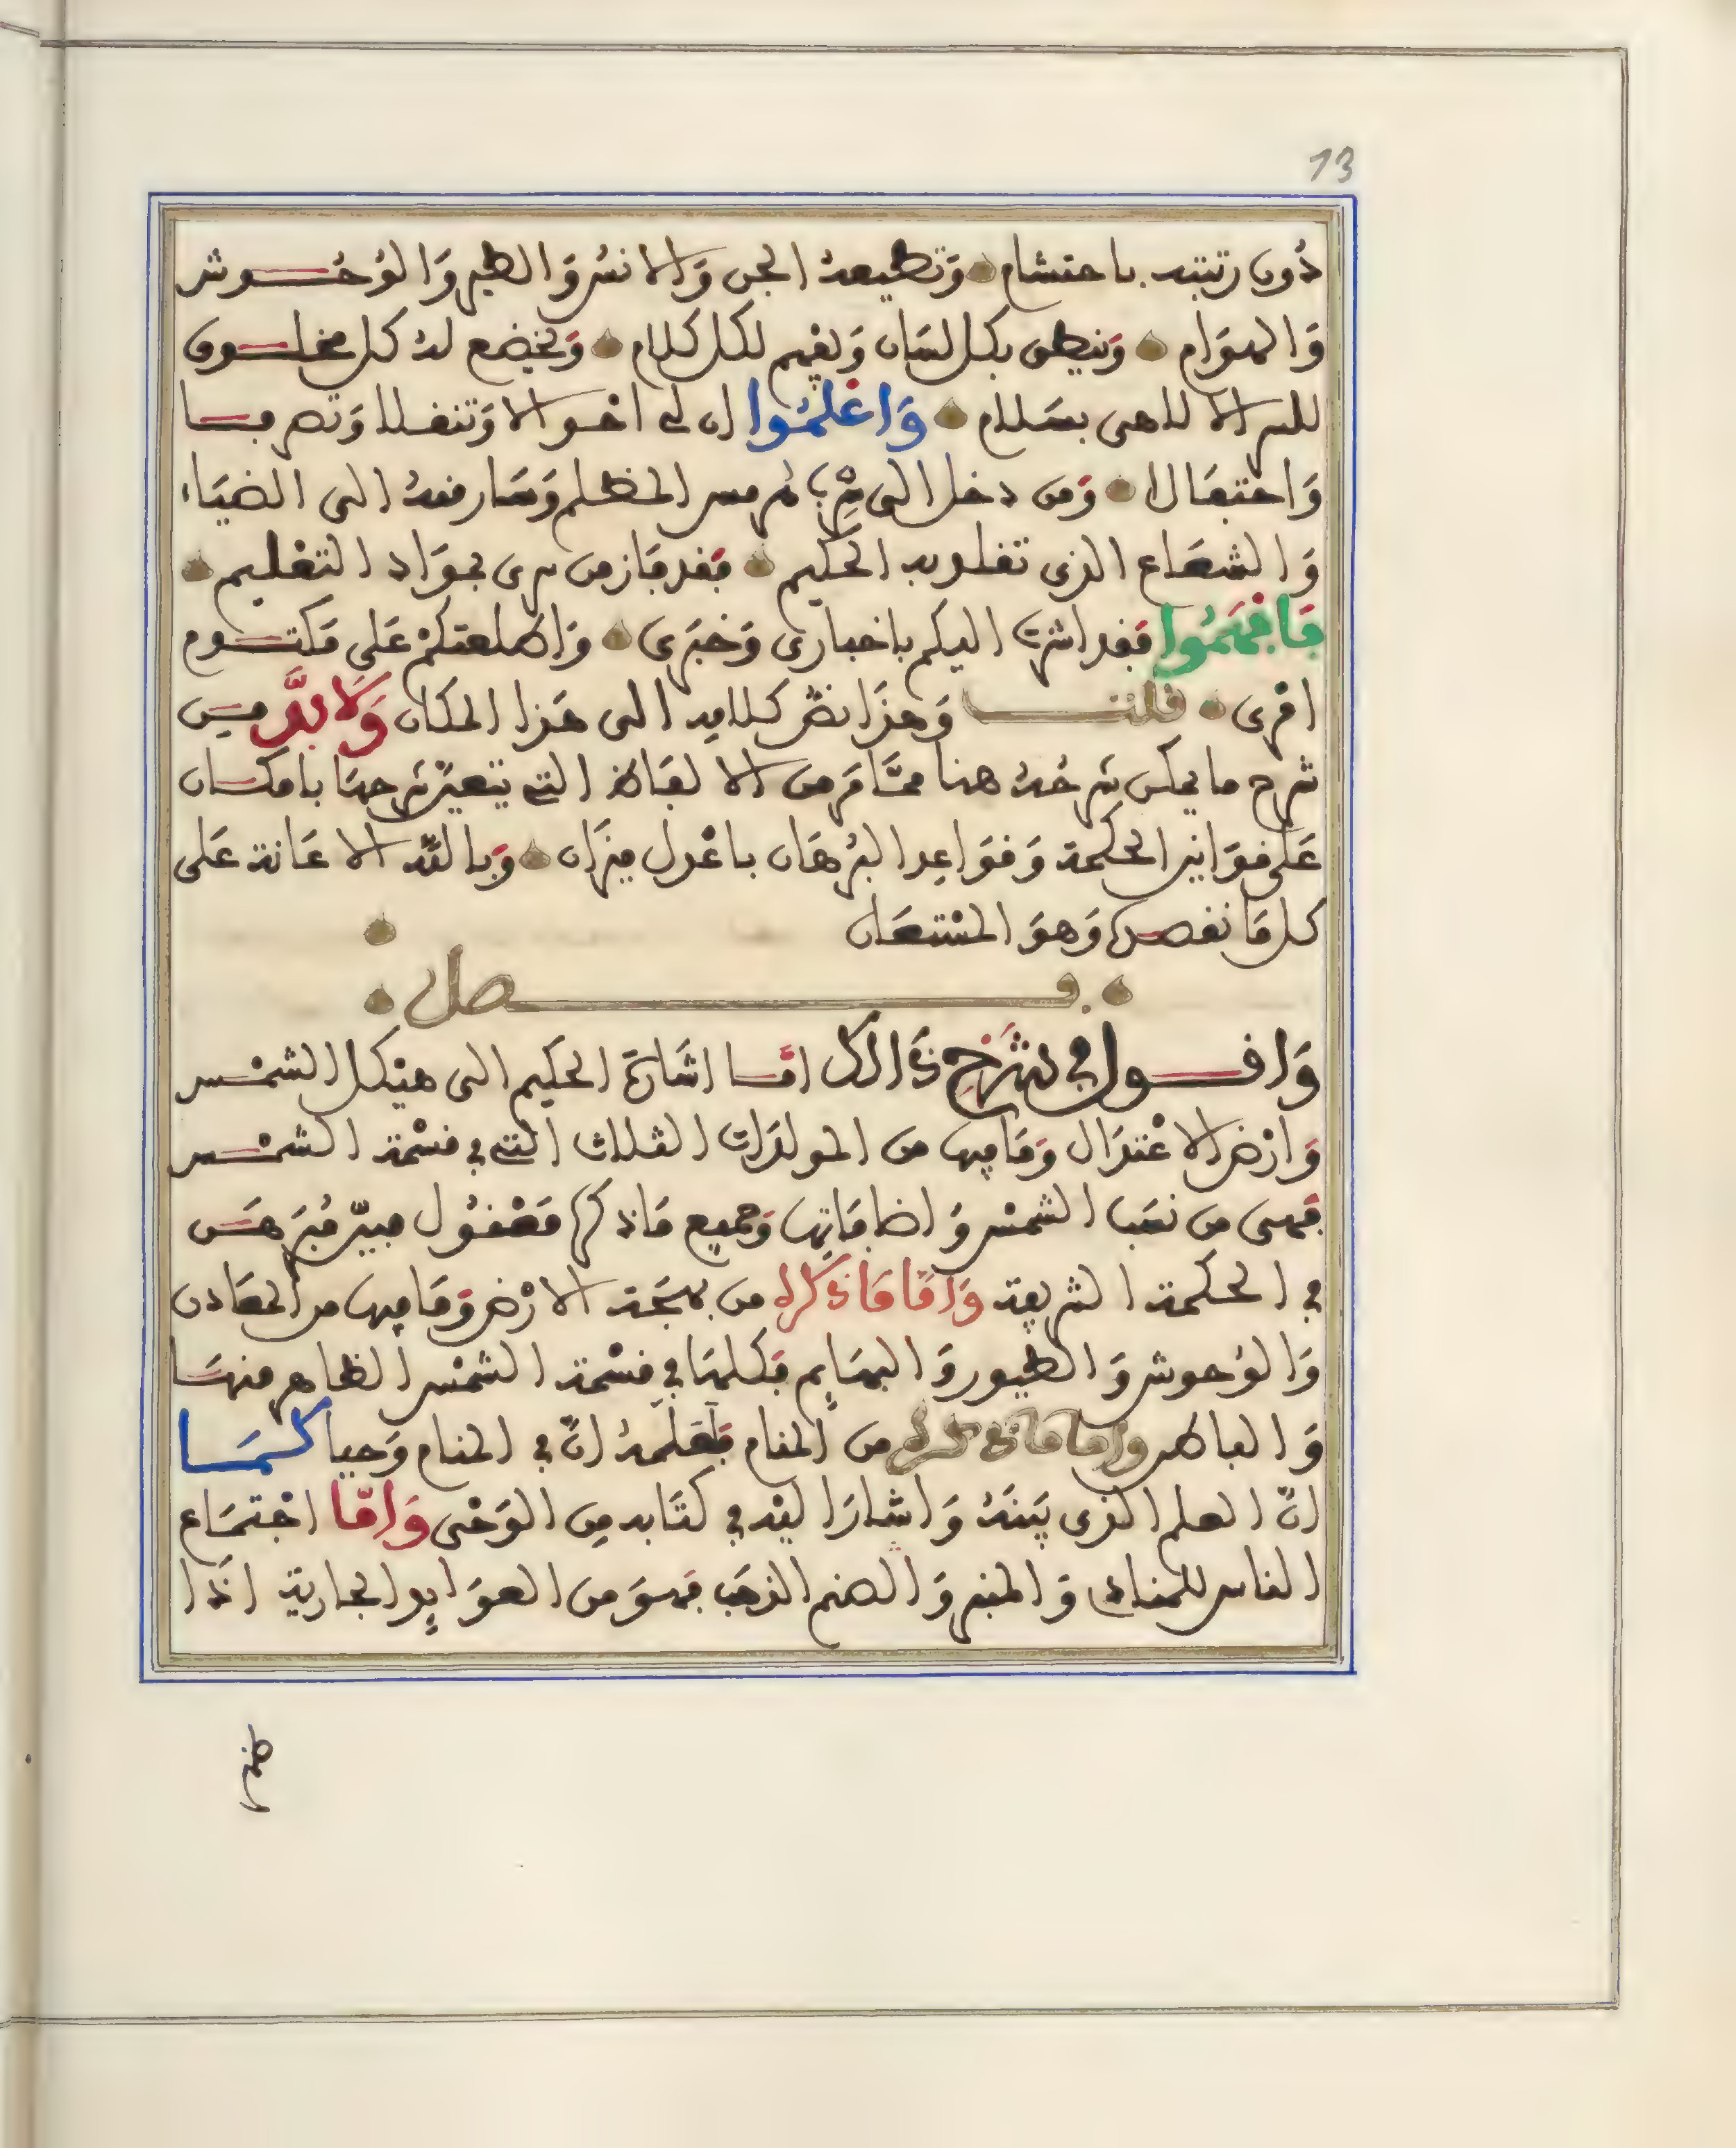 13
دُون رتبته باحتشام وَتطيعهُ الجن وَالانسُ وَالطير وَالوُحُـوش
وَالهوَام وَينطق بكل لسَان وَيفهم لكل كلام وَيخضع لهُ كل مخلـوق
للسر الالاهى بسَلام وَاعْلمُوا ان لى احـوالا وَتنقلا وَتصرفـا
وَاحتفَالا وَمن دخل الى من المظلم وَسَار منهُ الى الضيَاء
وَالشعَاع الذى تقلد به الحكيم فقد فَاز من سرى بجوَاد التعْليم
فَافهَمُوا فقد اشرت اليكم باخبارى وَخبَرى وَاطلعتكمْ عَلى مَكتـوم
امْرى قلتـ وَهذَا نصّ كلامه الى هَذا المكان وَلَا بدَّ مـن
شرح ما يمكن شرحُهُ هنا ممَّا مَر من الالفاظ التى يتعيّن شرحهَا بامكـان
عَلى قوَانين الحكمة وَقوَاعِد البُرهَان باعْدل ميزَان وَبالله الاعَانة عَلى
كل مَا نقصده وَهوَ المسْتعَان
فـصل
وَاقـول في شرْح ذَالك امّـا اشَارَة الحكيم الى هيْكل الشمْـس
وَارْض الاعْتدَال وَمَا فيها من المولدَات الثلاث التى في قسْمة الشمْـس
فهى من نصَب الشمْس وَاضافَاتها وَجميع مَا ذكره مَعْقُول مبيّن مُبَرهَـن
في الحكمة الشريفة وَامَّا مَا ذَكره من بهجَة الارْض وَمَا فيها من المعَادن
وَالوُحوش وَالطيور وَالبهَايم فكلهَا في قسْمة الشمْس الظاهر منهَـا
وَالباطن وَامَا مَا ذكره من المنام فعَلمهُ انّ في المنام وَحيا كـمَـا
انّ العلم الذى بَينَهُ وَاشارَ اليْه في كتَابه من الوَحْى وَامّا اجْتمَاع
الناس للمناد وَالمنبر وَالصنم الذهَب فهوَ من العوَايد الجارية اذَا